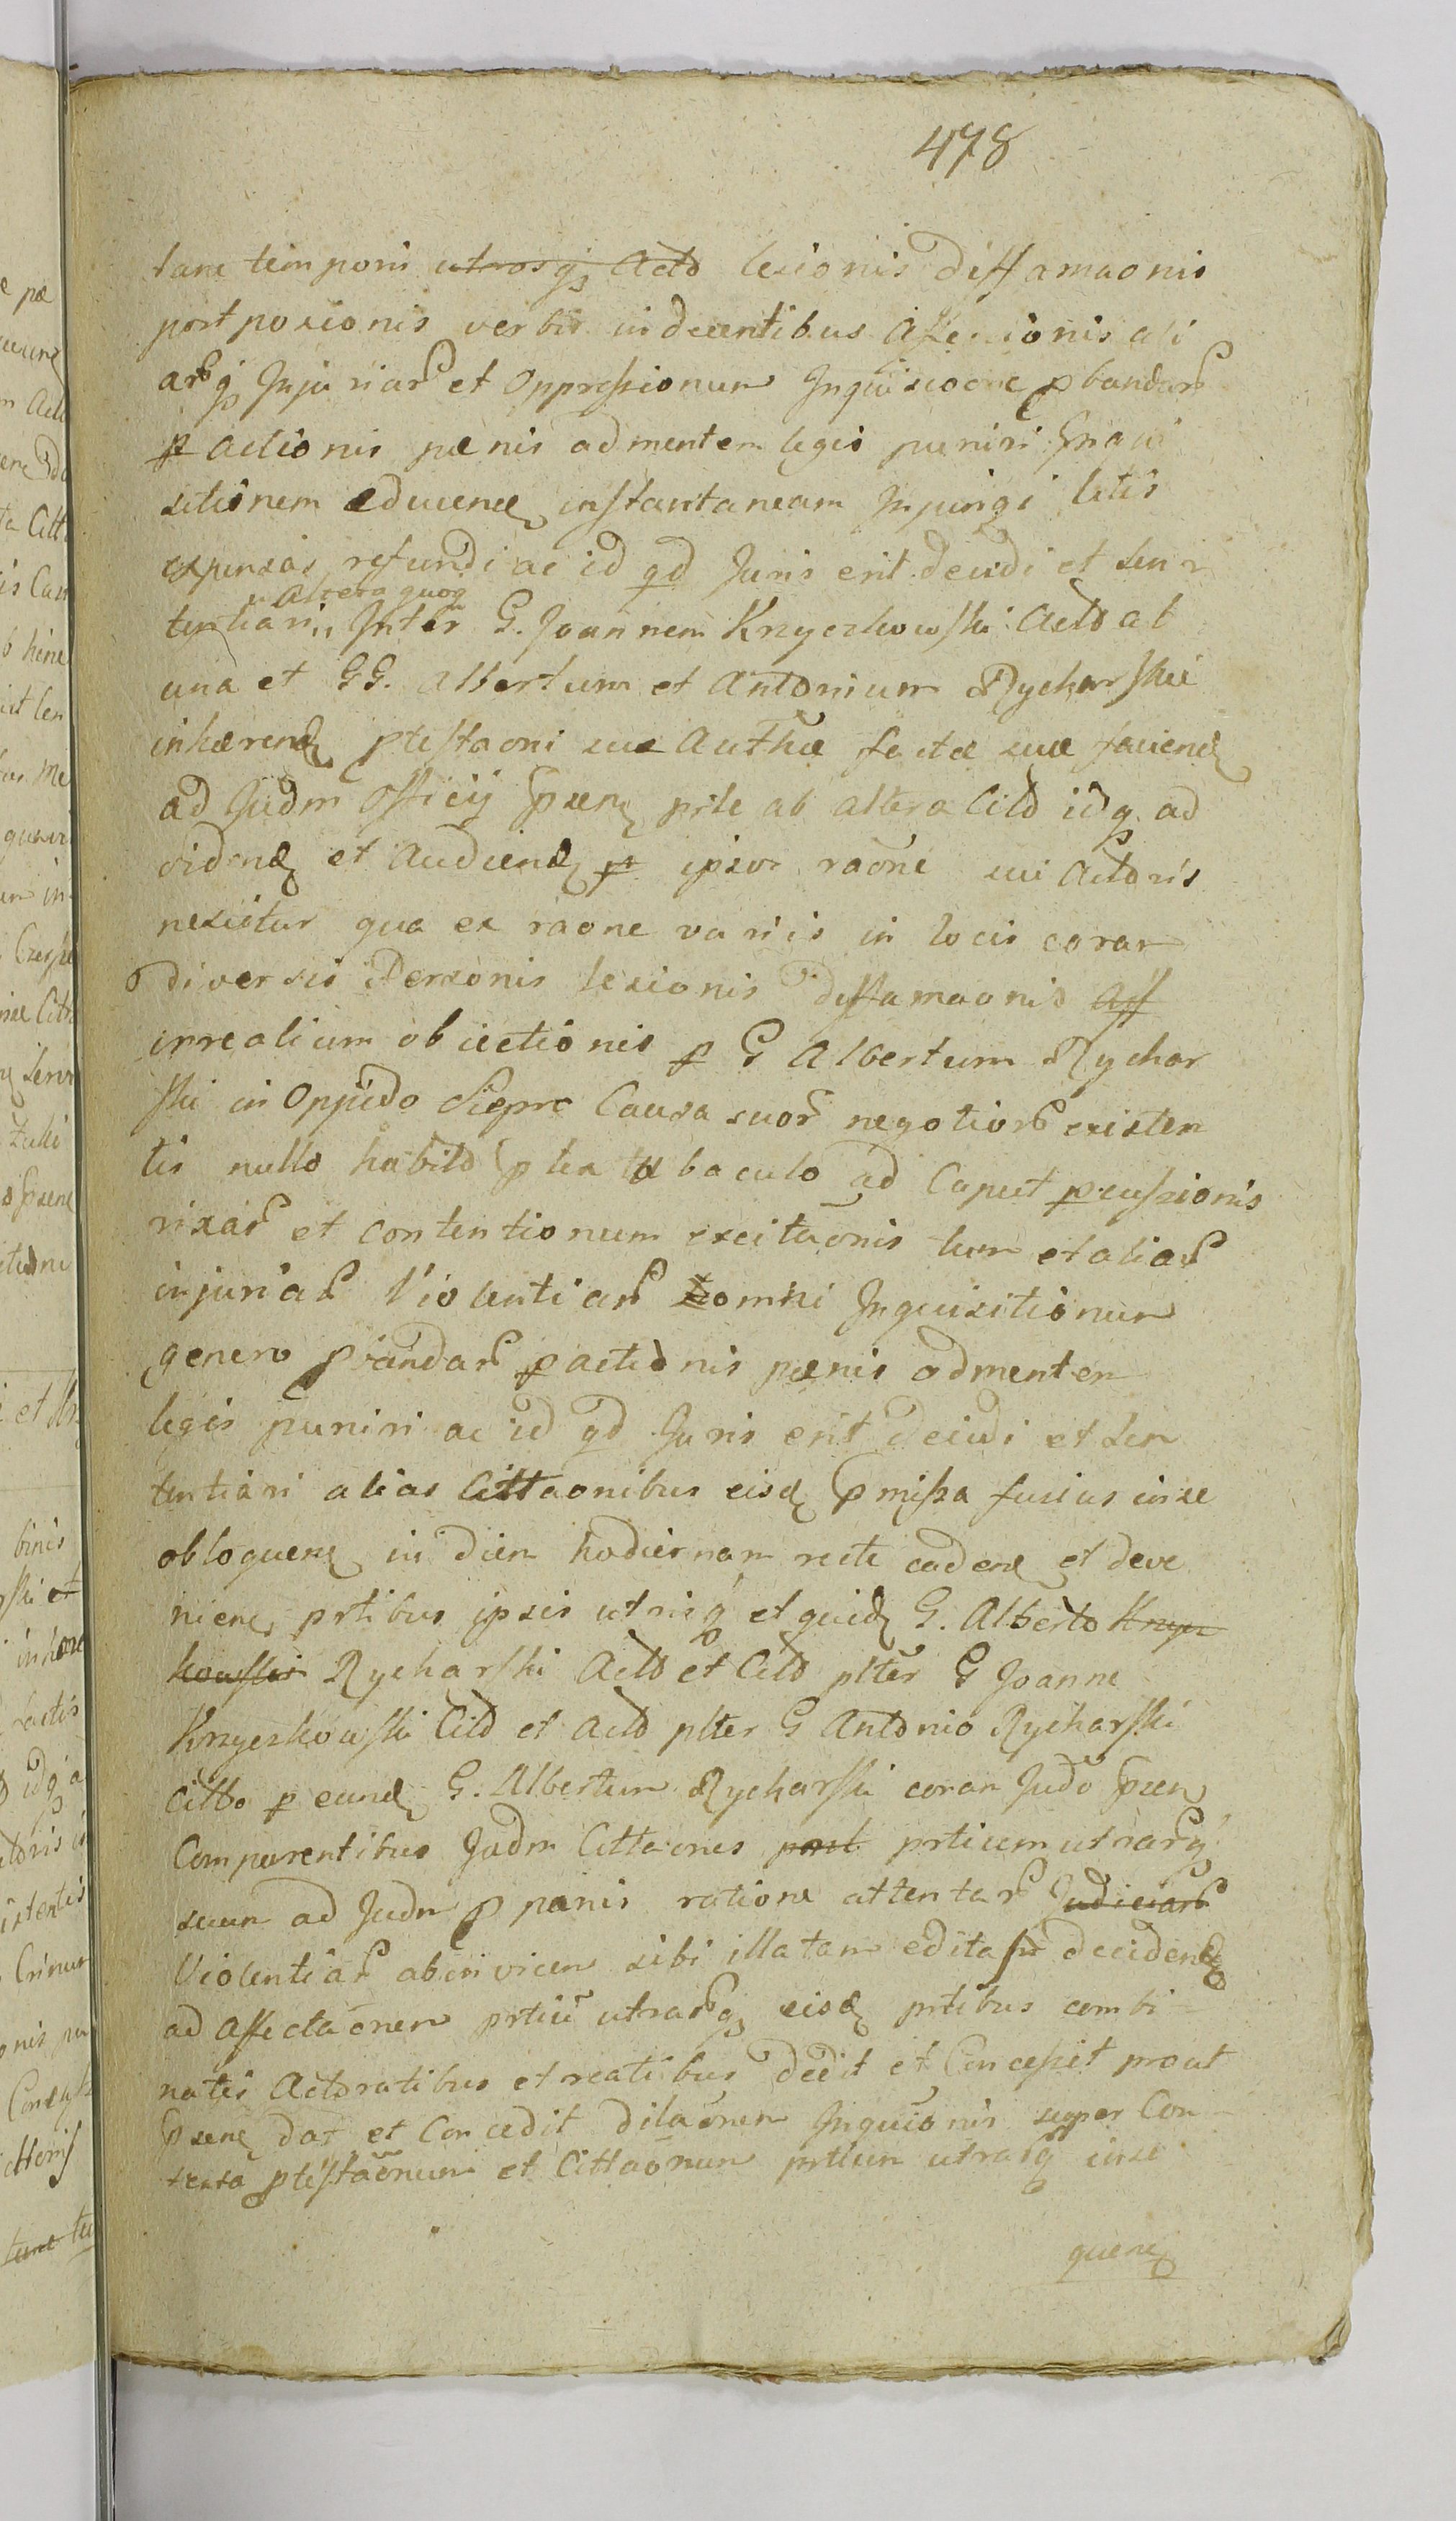 478
tane temporis utrosq Acto lesionis diffamaonis
postposicionis verbis indecentibus Affeccionis ali
arq Injuriar et Oppressionum Inquisicione pbandar
p actionis pœnis ad mentem legis puniri
sitionem educend instantaneam Injungi litis
expensas refundi ac id qd Juris erit decidi et sen
Altera quoq
tentiari Inter G. Joannem Knyczkowski Acto ab
una et GG. Albertum et Antonium Rycharskie
inhærend ptestaoni suæ Authæ factæ suæ faciend
ad Judm Officij psen prte ab altera Cito idq ad
vidend et Audiend p ipsor raone sui Actoris
nescitur qua ex raone variis in locis coram
diversis Personis lesionis diffamaonis Aff
irrealium obiectionis p G Albertum Rychar
ski in Oppido Siepre Causa suor negotior existen
tis nullo habito p baculo ad Caput pcussionis
rixar et contentionum excitaonis tum et aliar
injuriar Violentiar omni Inquisitionum
genere pbandar p actionis pœnis ad mentem
legis puniri ac id qd Juris erit decidi et Sen
tentiari alias Cittaonibus eisd pmissa fusius in se
obloquen in diem hodiernam recte caden et deve
nien prtibus ipsis utrisq et quid G. Alberto Knycz
kowski Rycharski Acto et Cito plter G Joanne
Knyczkowski Cito et Acto plter G Antonio Rycharski
Citto p eund G. Albertum Rycharski coram Judo psen
Comparentibus Judm Cittaones post prtium utrarq
suum ad Judm p pœnis ratione attentar Judiciar
Violentiar ab invicem sibi illatar editas decidend
ad affectaonem prtiu utrarq eisd prtibus combi
natis Actoratibus et reatibus dedit et Concessit prout
psen dat et Concedit dilaonem Inquionis super Con
texta ptestaonum et Cittaonum prtium utrarq in se
quen